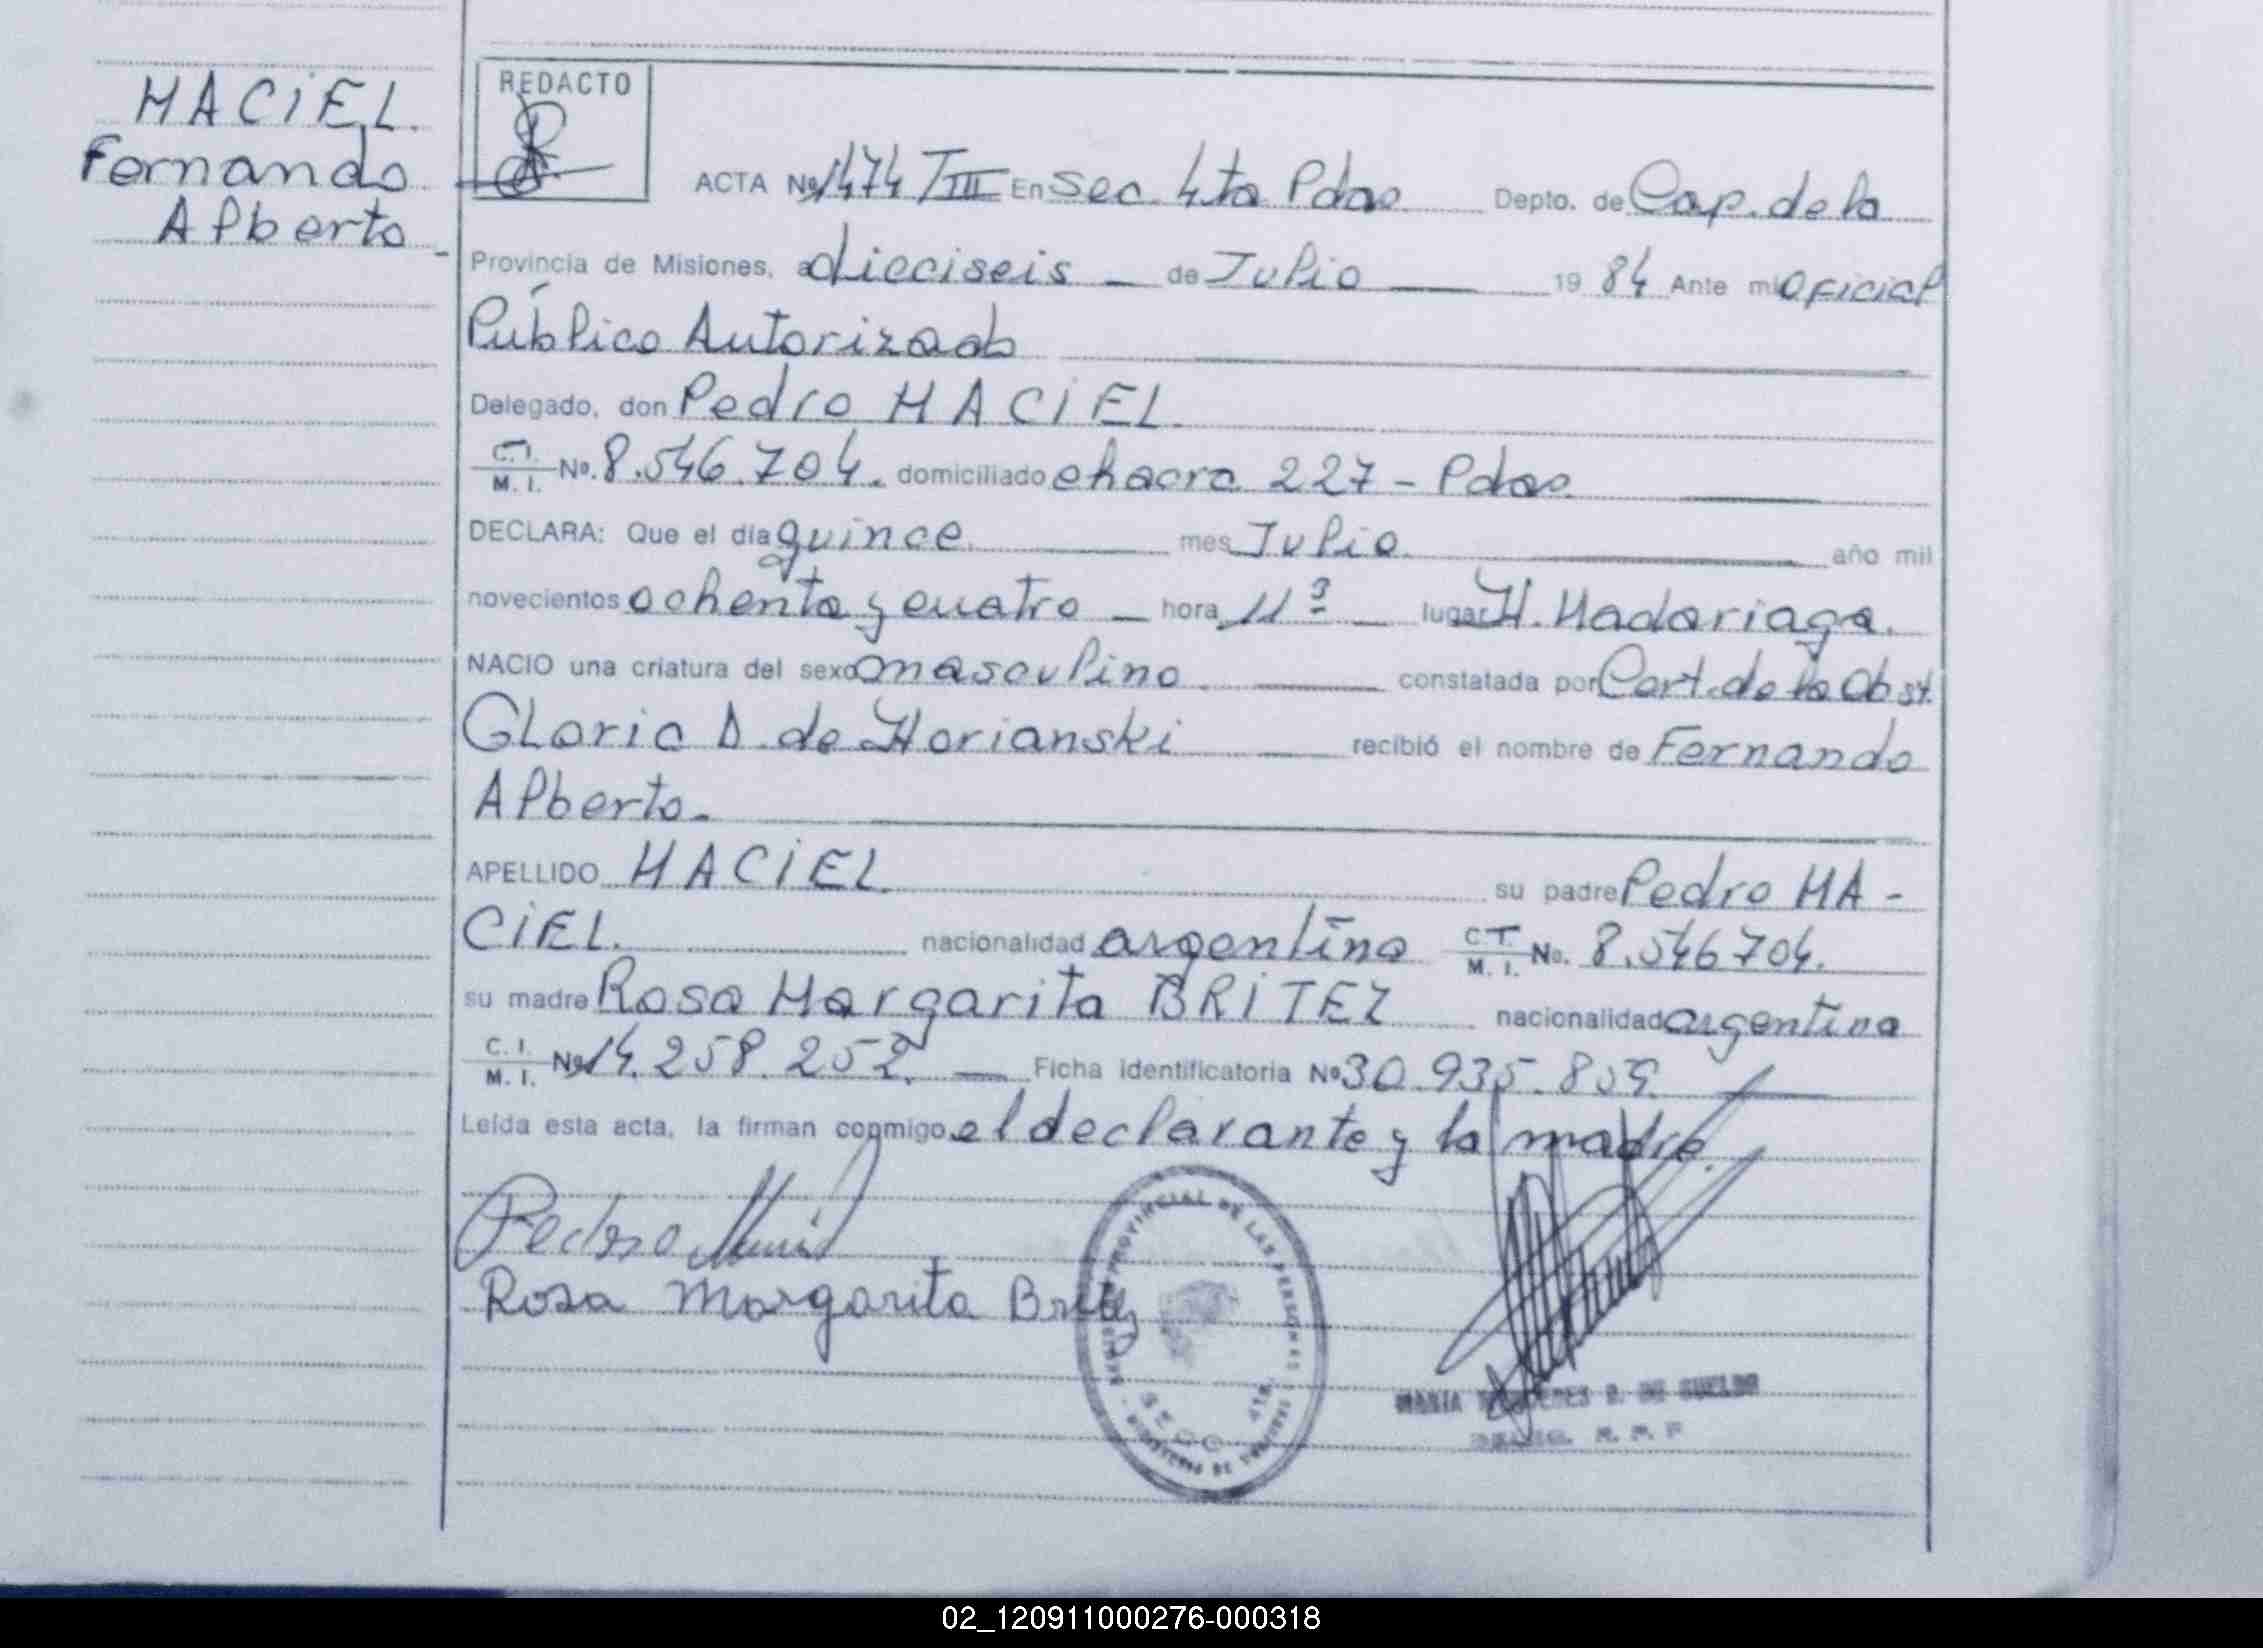 MACIEL.
Fernando
Alberto
REDACTO
ACTA Nº 1474 TIII En Sec. 4ta Pdas Depto. de Cap. de la
Provincia de Misiones, a dieciseis de Julio 1984 Ante mi Oficial
Público Autorizado
Delegado, don Pedro MACIEL
C.I. M.I. No. 8.546.704. domiciliado chacra 227 - Pdas.
DECLARA: Que el día quince mes Julio año mil
novecientos ochenta y cuatro hora 11 lugar H. Madariaga.
NACIO una criatura del sexo masculino constatada por Cert. de la Obst.
Gloria D. de Horianski recibió el nombre de Fernando
Alberto.
APELLIDO MACIEL su padre Pedro MA-
CIEL. nacionalidad argentino C.I. M.I. No. 8.546704.
su madre Rosa Margarita BRITEZ nacionalidad argentina
C.I. M.I. Nº 14.258.252. Ficha identificatoria Nº 30.935.809.
Leída esta acta, la firman conmigo el declarante y la madre.
Pedro
Rosa Margarita Britez
PROVINCIAL DE LAS PERSONAS
MARIA DE